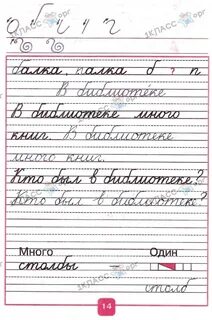 б ч г
балка, палка б ? п
В библиотеке
В библиотеке много
книг. В библиотеке
много книг.
Кто был в библиотеке?
Кто был в библиотеке?
Много Один
столбы –
столб
14